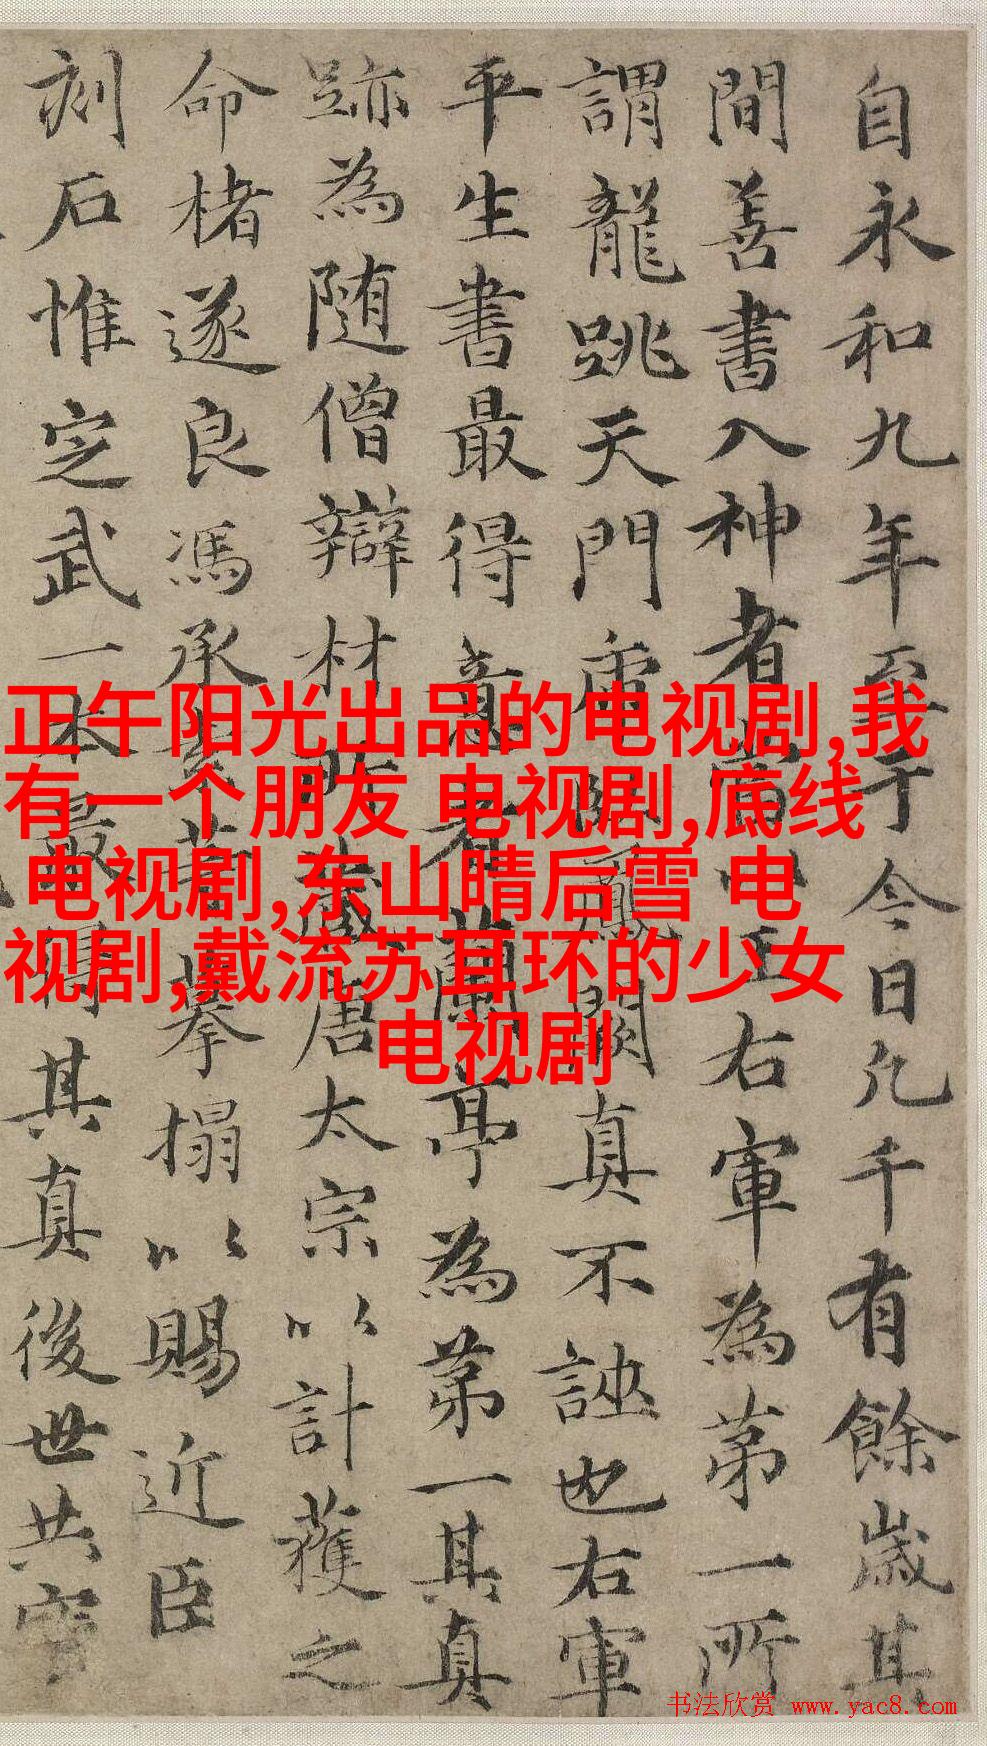 自永和九年至于今日凡千有餘歲其
間善書入神者當以王右軍為第一所
謂龍跳天門虎臥鳳閣真不誣也右軍
平生書最得意者蘭亭為第一其真
跡為随僧辯材所藏唐太宗以計獲之
命楮遂良馮承素等摹搨以賜近臣
刻石惟定武一本最得其真後世共寶
正午阳光出品的电视剧,我
有一个朋友 电视剧,底线
电视剧,东山晴后雪 电
视剧,戴流苏耳环的少女
电视剧
书法欣赏 www.yac8.com